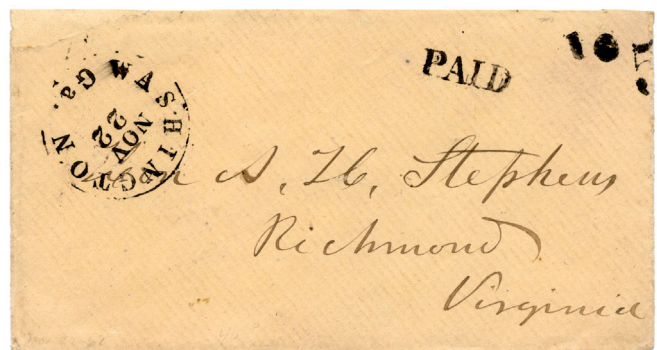 WASHINGTON Ga.
NOV
22
PAID
10
5
Hon A. H. Stephens
Richmond
Virginia